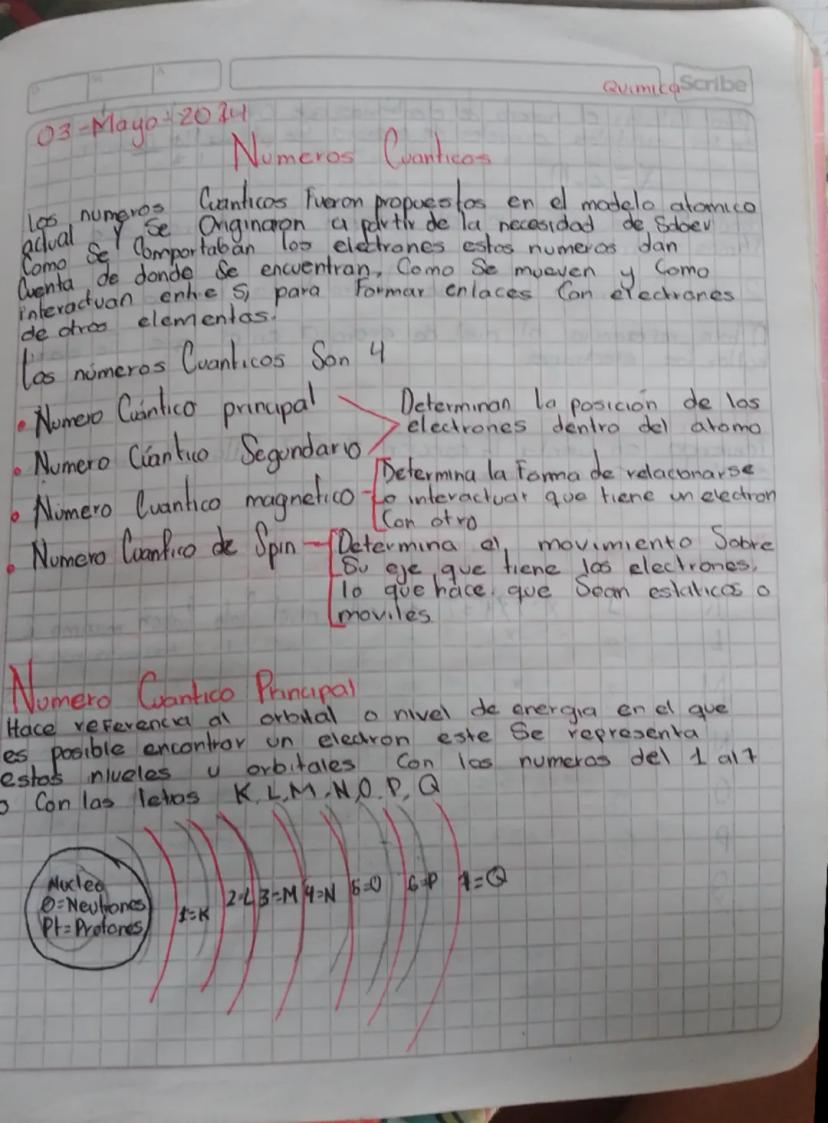 Quimica Scribe
03-Mayo-2024
Numeros Cuanticos
los numeros Cuanticos Fueron propuestos en el modelo atomico
actual y se Originaron a partir de la necesidad de Saber
Como Se Comportaban los electrones estos numeros dan
Cuenta de donde Se encuentran, Como Se mueven y Como
interactuan entre Si para Formar enlaces Con electrones
de otros elementos.
Los números Cuanticos Son 4
• Numero Cuántico principal
Determinan la posición de los
electrones dentro del atomo
• Numero Cuantico Segundario
• Número Cuantico magnetico
Determina la Forma de relacionarse
o interactuar que tiene un electron
Con otro
• Numero Cuantico de Spin
Determina el movimiento Sobre
Su eje que tiene los electrones,
lo que hace que Sean estaticos o
moviles
Numero Cuantico Principal
Hace referencia al orbital o nivel de energia en el que
es posible encontrar un electron este Se representa
estos niveles u orbitales Con los numeros del 1 al 7
o Con las letras K, L, M, N, O, P, Q
Nucleo
O=Neutrones
P+=Protones
1=K 2=L 3=M 4=N 5=O 6=P 7=Q